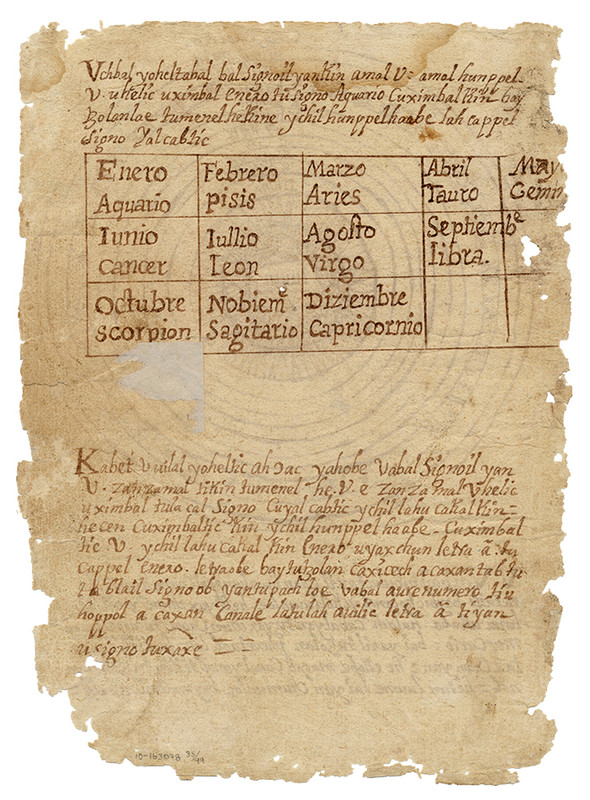 Vchbal yoheltabal bal Signoil yankin amal V: amal hunppel
V. uhelic uximbal Enero tusigno Aquario Cuximbal Kin bay
tumenel hekine ychil hunppel haabe lah cappel
Signo Yalcabtic
Enero Febrero Marzo Abril May
Aquario pisis Aries Tauro Gemin
Iunio Iullio Agosto Septiembe
Cancer Leon Virgo libra.
Octubre Nobiem Diziembre
Scorpion Sagitario Capricornio
Kabet Vuilal yoheltic ah Ɔac yahobe Vabal Signoil yan
V. Zanzamal tikin tumenel he. V. e Zanzamal Vhelic
uximbal tula cal Signo Cuyalcabtic ychil lahu cakal Kin=
hecen Cuximbaltic Kin ychil hunppel haabe- Cuximbal
tic V. ychil lahu cakal Kin Enero uyaxchun letra ã: tu
Cappel Enero. letraobe bay tubolan caxicech acaxantab tu
Signo ob yantupach toe Vabal aurenumero tiu
hoppol a caxan latulah auilic letra ã tiyan
u signo tuxaxe
10-163078 35/49